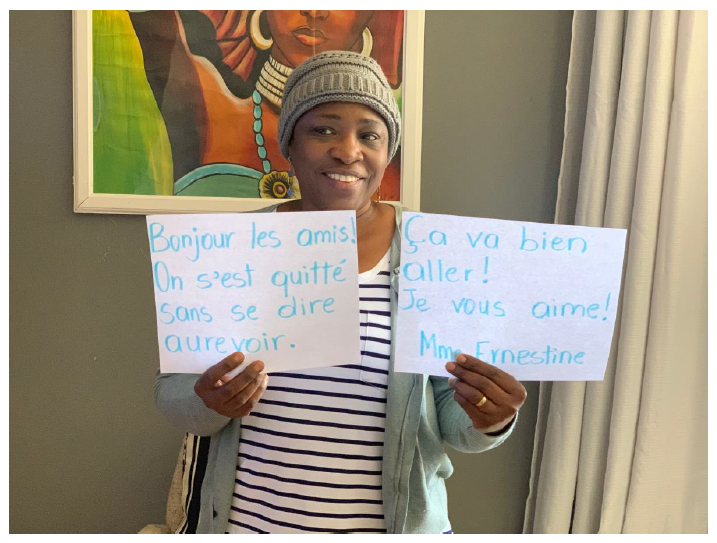 Bonjour les amis!
On s'est quitté
sans se dire
aurevoir.
Ça va bien
aller!
Je vous aime!
Mme Ernestine